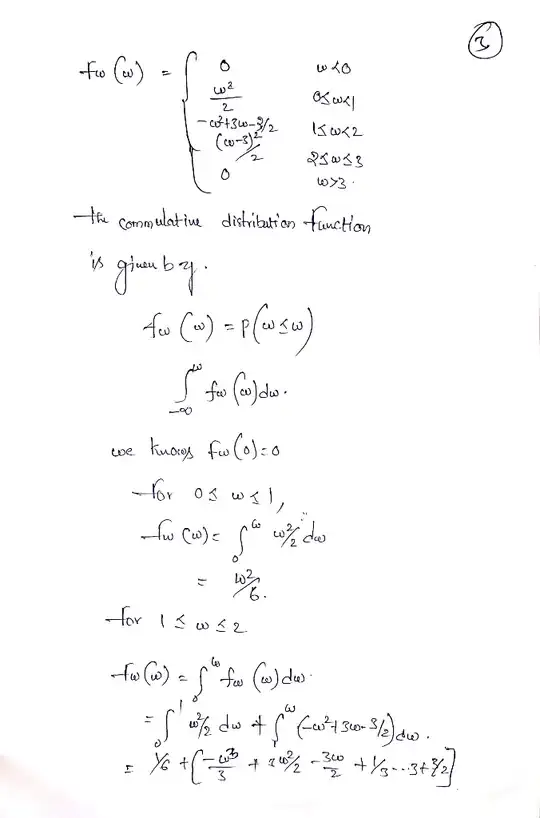 3
fw (ω) = { 0 ω<0
ω²/2 0≤ω<1
-ω²+3ω-3/2 1≤ω<2
(ω-3)²/2 2≤ω≤3
0 ω>3.
the commulative distribution function
is given by.
fw (ω) = P(ω≤ω)
∫_{-∞}^{ω} fω (ω)dω.
we knows fω(0)=0
for 0≤ ω ≤1,
fω (ω) = ∫_0^ω ω²/2 dω
= ω²/6.
for 1 ≤ ω ≤ 2
fω(ω) = ∫_0^ω fω (ω)dω.
= ∫_0^1 ω²/2 dω + ∫_1^ω (-ω²+3ω-3/2)dω.
= 1/6 + [-ω³/3 + 3ω²/2 - 3ω/2 + 1/3 - .. 3+3/2]